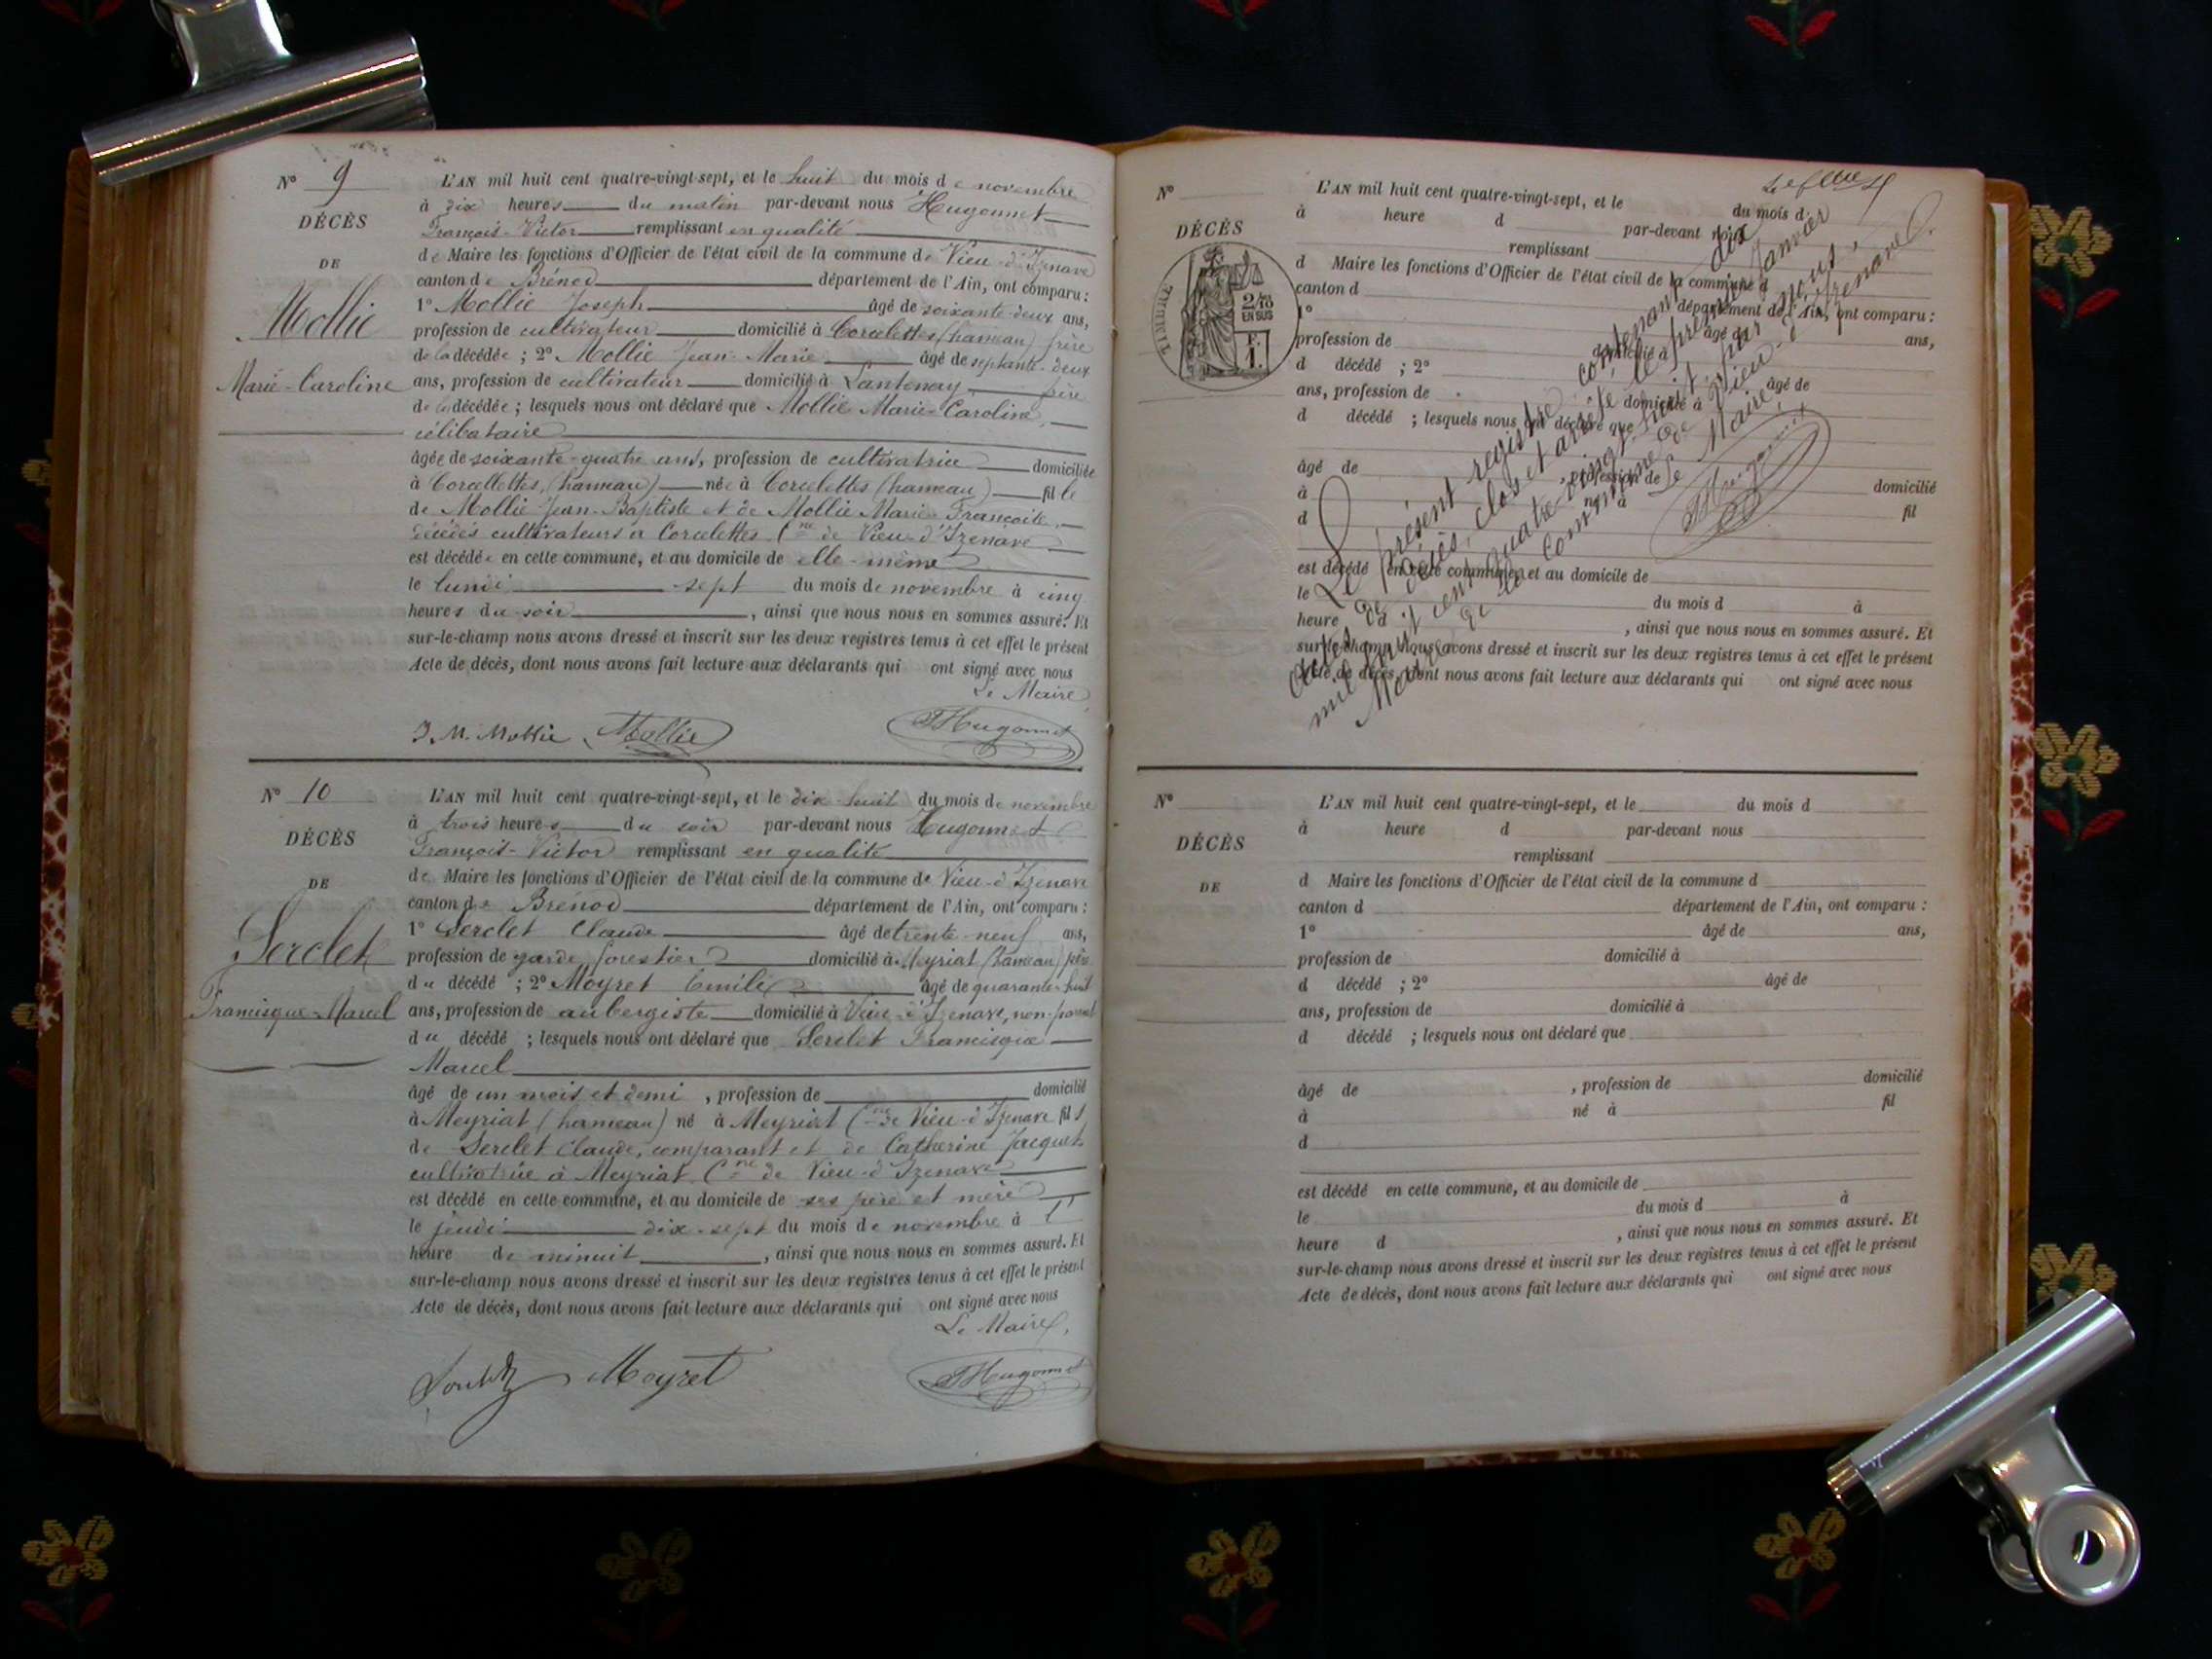 N° 9
DÉCÈS
DE
Mollie
Marie-Caroline
L'AN mil huit cent quatre-vingt-sept, et le huit du mois de novembre
à dix heures du matin par-devant nous Hugonnet
François-Victor remplissant en qualité
de Maire les fonctions d'Officier de l'état civil de la commune de Vieu-d'Izenave
canton de Brénod département de l'Ain, ont comparu :
1° Mollie Joseph âgé de soixante-deux ans,
profession de cultivateur domicilié à Corcelettes (hameau) frère
de la décédée ; 2° Mollie Jean-Marie âgé de septante-deux
ans, profession de cultivateur domicilié à Lantenay frère
de la décédée ; lesquels nous ont déclaré que Mollie Marie-Caroline,
célibataire
âgée de soixante-quatre ans, profession de cultivatrice domiciliée
à Corcellettes, (hameau) née à Corcelettes (hameau) fille
de Mollie Jean-Baptiste et de Mollie Marie Françoise,
décédés cultivateurs à Corcelettes Cne de Vieu-d'Izenave
est décédée en cette commune, et au domicile de elle-même
le lundi sept du mois de novembre à cinq
heures du soir, ainsi que nous nous en sommes assuré. Et
sur-le-champ nous avons dressé et inscrit sur les deux registres tenus à cet effet le présent
Acte de décès, dont nous avons fait lecture aux déclarants qui ont signé avec nous
Le Maire,
J. M. Mollie Mollie Hugonnet
N° 10
DÉCÈS
DE
Serclet
Francisque-Marcel
L'AN mil huit cent quatre-vingt-sept, et le dix-huit du mois de novembre
à trois heures du soir par-devant nous Hugonnet
François-Victor remplissant en qualité
de Maire les fonctions d'Officier de l'état civil de la commune de Vieu-d'Izenave
canton de Brénod département de l'Ain, ont comparu :
1° Serclet Claude âgé de trente-neuf ans,
profession de garde forestier domicilié à Meyriat (hameau) père
du décédé ; 2° Moyret Emile âgé de quarante-huit
ans, profession de aubergiste domicilié à Vieu-d'Izenave, non-parent
du décédé ; lesquels nous ont déclaré que Serclet Francisque
Marcel
âgé de un mois et demi, profession de domicilié
à Meyriat (hameau) né à Meyriat Cne de Vieu-d'Izenave fils
de Serclet Claude, comparant et de Catherine Jacquet
cultivatrice à Meyriat Cne de Vieu-d'Izenave
est décédé en cette commune, et au domicile de ses père et mère
le jeudi dix-sept du mois de novembre à l'
heure de minuit, ainsi que nous nous en sommes assuré. Et
sur-le-champ nous avons dressé et inscrit sur les deux registres tenus à cet effet le présent
Acte de décès, dont nous avons fait lecture aux déclarants qui ont signé avec nous
Le Maire,
Moyret Hugonnet
N°
DÉCÈS
TIMBRE
2/10
EN SUS
F.
1.
L'AN mil huit cent quatre-vingt-sept, et le du mois d
à heure d par-devant nous
remplissant
d Maire les fonctions d'Officier de l'état civil de la commune d
canton d département de l'Ain, ont comparu :
1° âgé de ans,
profession de domicilié à
d décédé ; 2° âgé de
ans, profession de domicilié à
d décédé ; lesquels nous ont déclaré que
âgé de , profession de domicilié
à né à fil
d
est décédé en cette commune, et au domicile de
le du mois d à
heure d , ainsi que nous nous en sommes assuré. Et
sur-le-champ nous avons dressé et inscrit sur les deux registres tenus à cet effet le présent
Acte de décès, dont nous avons fait lecture aux déclarants qui ont signé avec nous
Le présent registre contenant dix
actes de décès, clos et arrêté le premier Janvier
mil huit cent quatre-vingt-huit, par nous,
Maire de la commune de Vieu-d'Izenave.
Le Maire
Hugonnet
N°
DÉCÈS
DE
L'AN mil huit cent quatre-vingt-sept, et le du mois d
à heure d par-devant nous
remplissant
d Maire les fonctions d'Officier de l'état civil de la commune d
canton d département de l'Ain, ont comparu :
1° âgé de ans,
profession de domicilié à
d décédé ; 2° âgé de
ans, profession de domicilié à
d décédé ; lesquels nous ont déclaré que
âgé de , profession de domicilié
à né à fil
d
est décédé en cette commune, et au domicile de
le du mois d à
heure d , ainsi que nous nous en sommes assuré. Et
sur-le-champ nous avons dressé et inscrit sur les deux registres tenus à cet effet le présent
Acte de décès, dont nous avons fait lecture aux déclarants qui ont signé avec nous